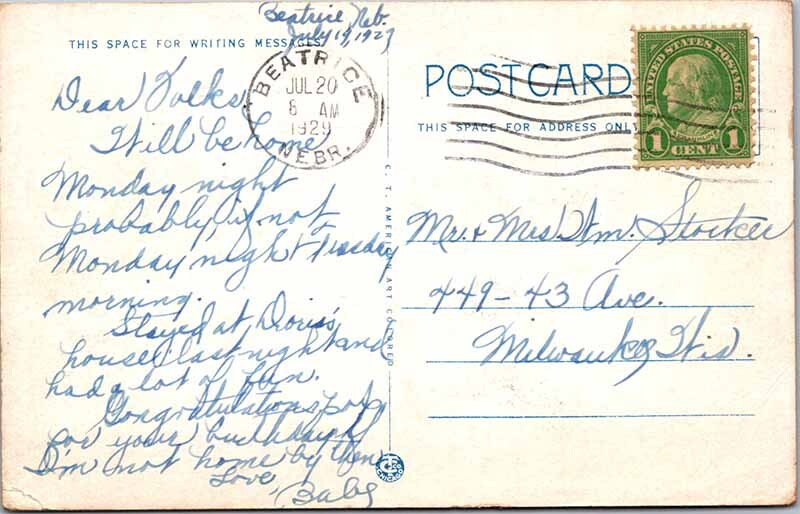 Beatrice, Neb.
July 19, 1929
THIS SPACE FOR WRITING MESSAGES
BEATRICE
JUL 20
8 AM
1929
NEBR.
POSTCARD
THIS SPACE FOR ADDRESS ONLY
UNITED STATES POSTAGE
FRANKLIN
1 CENT 1
Dear Folks,
Will be home
Monday night
probably, if not
Monday night Tuesday
morning.
Stayed at Doris's
house last night and
had a lot of fun.
Congratulations pop
for your birthday if
I'm not home by then
Love,
Babs
C. T. AMERICAN ART COLORED
CHICAGO
Mr. & Mrs. Wm. Stocker
449-43 Ave.
Milwaukee, Wis.